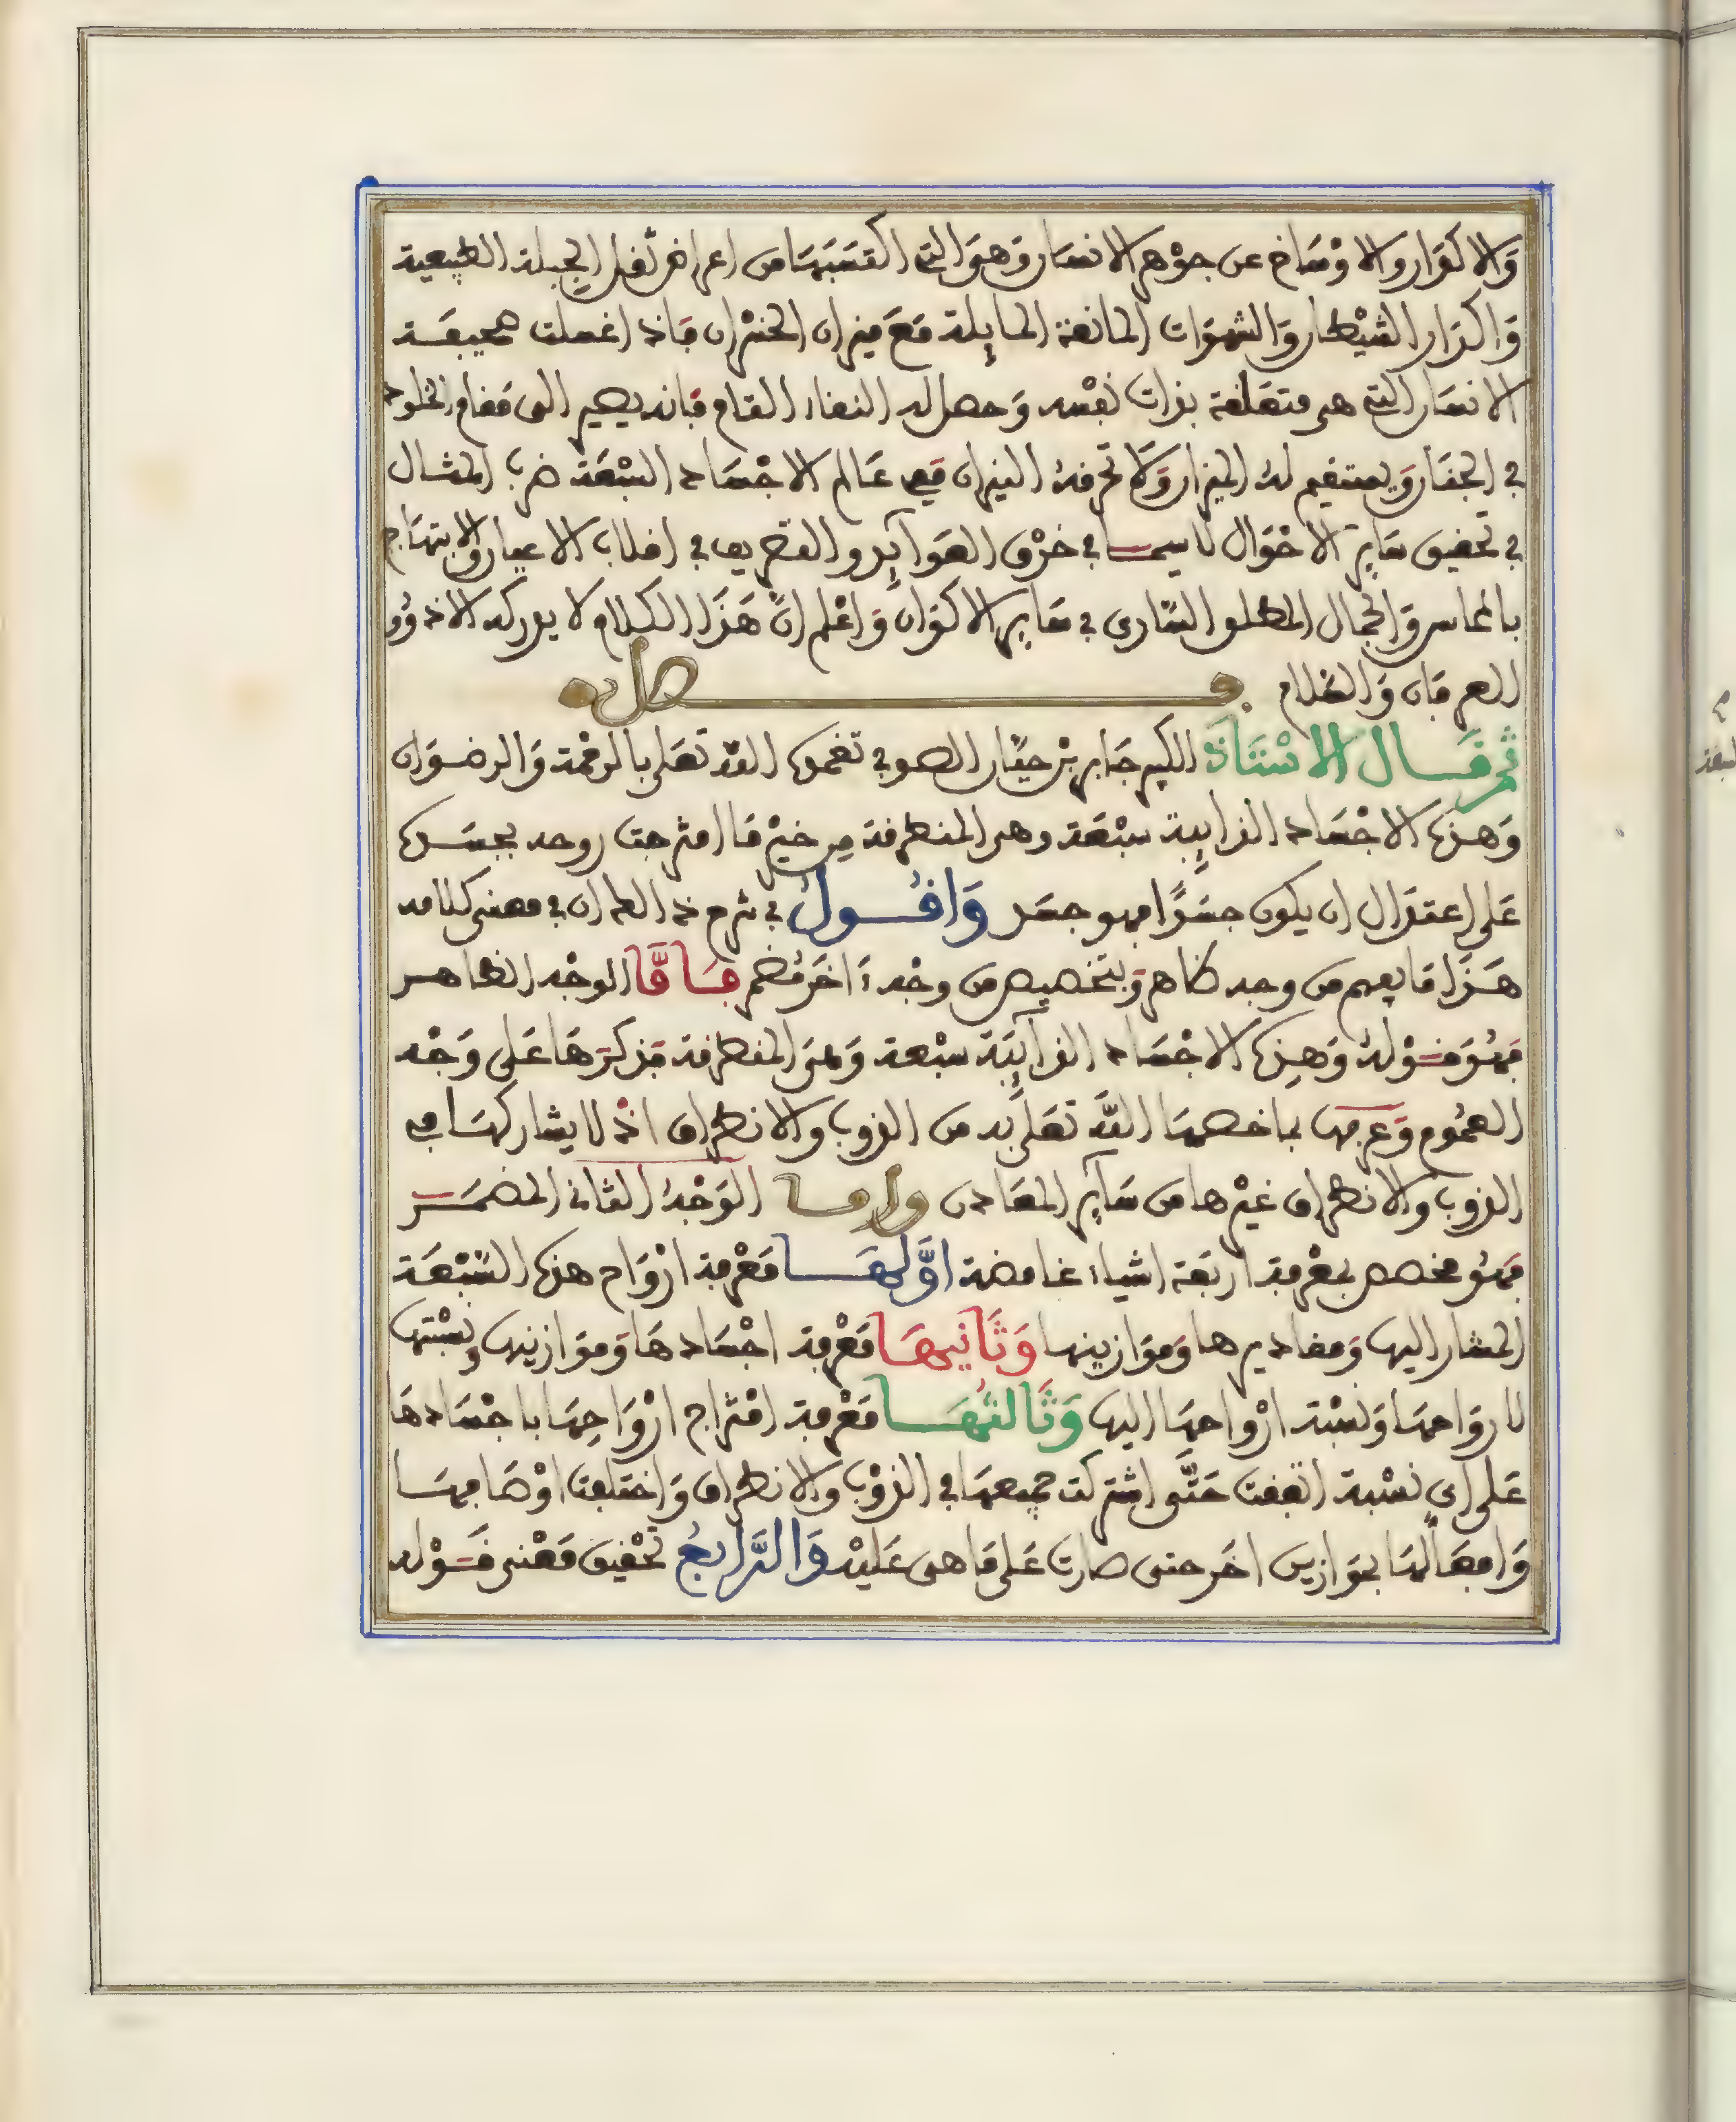 وَالاكوَار والاوْسَاخ عن جوْهر الانسَان وَهوَ التي اكتسَبَهَا من اعراض ثفل الجِبلة الطبيعية
وَاكدَار الشيْطان وَالشهوَات المانعة الحايِلة مَعَ ميزان الخسْران فإذا اغتسلت صحيفَة
الانسَان التي هي متعَلقة بذات نفسه وَحصل له النقاء التام فانه يصير الى مَقام الخلود
في الجنَان وَيستقيم لهُ الميزان وَلا تحرقهُ النيران ففي عَالم الاجْسَاد السبْعَة ضرب المثال
في تحقيق سَاير الاحْوَال لا سيما في خرْق العوَايِد والتصريف في اقلاب الاعيان والابتهَاج
بالمحاسن وَالجمال المطلق السَّاري في سَاير الاكوَان وَاعْلم انَّ هَذَا الكلام لا يدركه الا ذوُو
العرفان وَالسَّلام فصل
ثم قَال الاسْتَاذ الكبير جَابر بْن حيَّان الصوفي تغمده اللهُ تعَلى بالرحْمة وَالرضوَان
وَهذه الاجْسَاد الذايِبة سبْعَة وهي المنطرقة مِن حيْث مَا امتزجت روحه بجسَده
عَلى اعتدَال ان يكون جسَدًا فهو جسَد وَاقُول في شرح ذا الطران في معنى كلامه
هَذَا مَا يعم من وجه ظاهر وَبتخصيص من وجْه ءَاخَر مُضمر فَامَّا الوجْه الظاهر
فهُوَ قوْلهُ وَهذِه الاجْسَاد الذايِبَة سبْعة وَهيَ المنطرقة فذكرَهَا عَلى وَجْه
العمُوم وَعرفهَا بما خصهَا اللهُ تعَلى به من الذوب والانطراق اذْ لا يشاركهَا في
الذوب والانطراق غيْرها من سَايِر المعَادن وامـا الوَجْهُ الثاني المضمَر
فهُو مخصص بمعْرفة ارْبَعَة اشياء غامضة اوَّلهَا مَعْرفة ارْوَاح هذه السَّبْعَة
المشار اليها وَمقاديرها وَموَازينها وَثَانيهَا مَعْرفة اجْسَادهَا وَموَازينها وَنسْبتها
لارْوَاحهَا وَنسْبة ارْواحهَا اليها وَثَالثُهَا مَعْرفة امْتزَاج ارْوَاحِهَا باجْسَادهَا
عَلى اي نسْبة اتفقت حَتَّى اشتركت جميعهَا في الذوْب وَالانطراق وَاختلفت اوْصَافهَا
وَافعَالهَا بموَازين اخَر حتى صارت عَلى مَا هي عَليْه وَالرَّابعُ تحْقيق مَعْنى قوْله